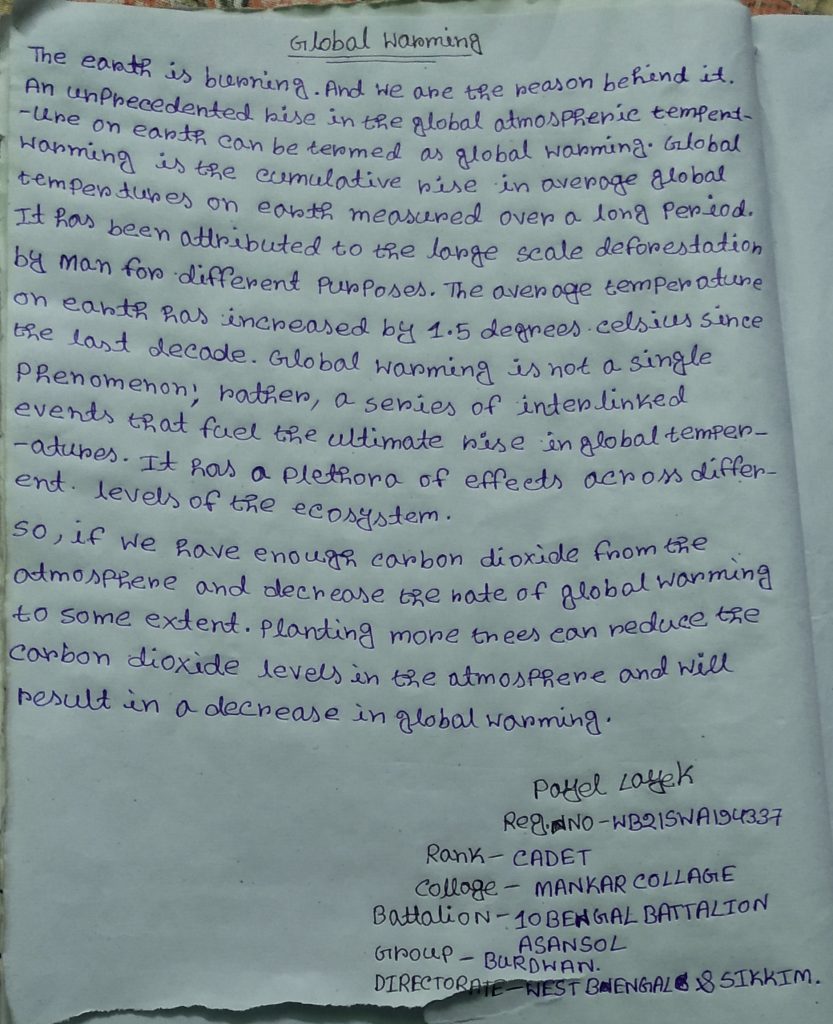 Global Warming
The earth is burning. And we are the reason behind it.
An unprecedented rise in the global atmospheric temperat-
-ure on earth can be termed as global warming. Global
warming is the cumulative rise in average global
temperatures on earth measured over a long period.
It has been attributed to the large scale deforestation
by man for different purposes. The average temperature
on earth has increased by 1.5 degrees celsius since
the last decade. Global warming is not a single
phenomenon; rather, a series of interlinked
events that fuel the ultimate rise in global temper-
-atures. It has a plethora of effects across differ-
ent. levels of the ecosystem.
so, if we have enough carbon dioxide from the
atmosphere and decrease the rate of global warming
to some extent. planting more trees can reduce the
carbon dioxide levels in the atmosphere and will
result in a decrease in global warming.
Payel Layek
Reg. NO - WB21SWA194337
Rank - CADET
Collage - MANKAR COLLAGE
Battalion - 10 BENGAL BATTALION
ASANSOL
Group - BURDWAN.
DIRECTORATE - WEST BENGAL & SIKKIM.